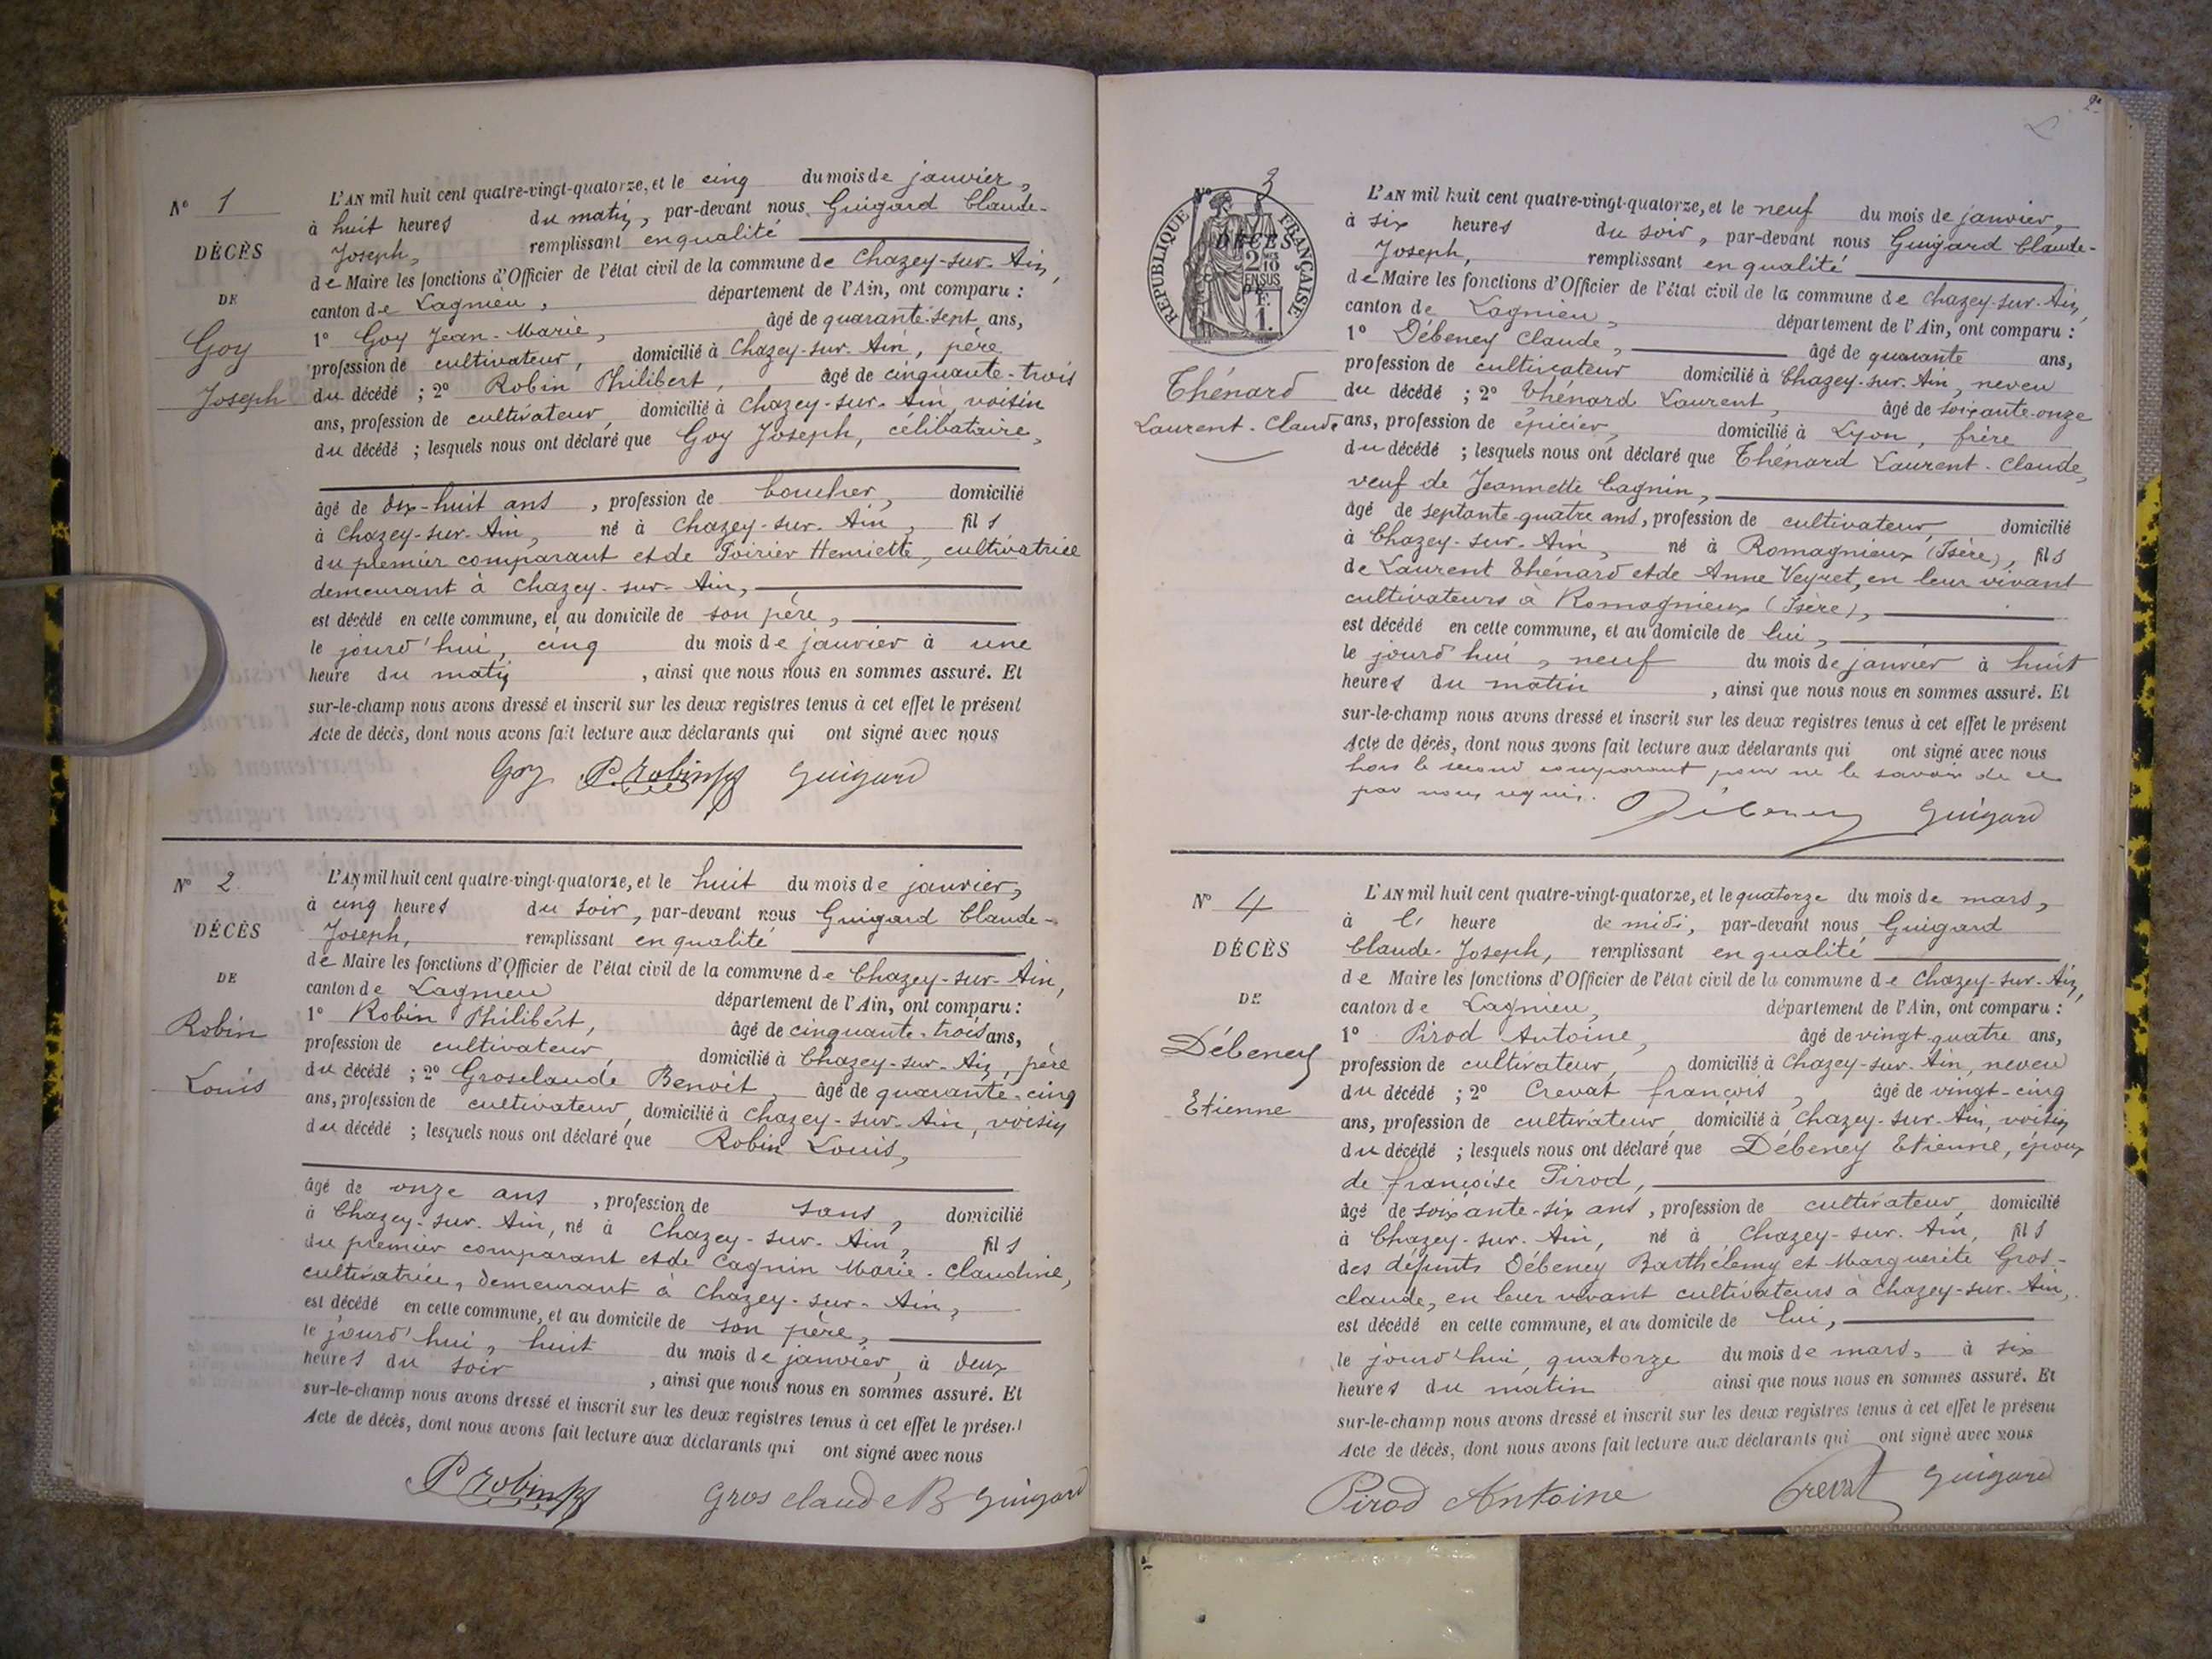 N° 1
DÉCÈS
DE
Goy
Joseph
L'AN mil huit cent quatre-vingt-quatorze, et le cinq du mois de janvier,
à huit heures du matin, par-devant nous Guigard Claude-
Joseph, remplissant en qualité
de Maire les fonctions d'Officier de l'état civil de la commune de Chazey-sur-Ain,
canton de Lagnieu, département de l'Ain, ont comparu :
1° Goy Jean-Marie, âgé de quarante-sept ans,
profession de cultivateur, domicilié à Chazey-sur-Ain, père
du décédé ; 2° Robin Philibert, âgé de cinquante-trois
ans, profession de cultivateur, domicilié à Chazey-sur-Ain, voisin
du décédé ; lesquels nous ont déclaré que Goy Joseph, célibataire,
âgé de dix-huit ans, profession de boucher, domicilié
à Chazey-sur-Ain, né à Chazey-sur-Ain, fils
du premier comparant et de Poirier Henriette, cultivatrice
demeurant à Chazey-sur-Ain,
est décédé en cette commune, et au domicile de son père,
le jourd'hui, cinq du mois de janvier à une
heure du matin, ainsi que nous nous en sommes assuré. Et
sur-le-champ nous avons dressé et inscrit sur les deux registres tenus à cet effet le présent
Acte de décès, dont nous avons fait lecture aux déclarants qui ont signé avec nous
Goy P. Robin Guigard
N° 2
DÉCÈS
DE
Robin
Louis
L'AN mil huit cent quatre-vingt-quatorze, et le huit du mois de janvier,
à cinq heures du soir, par-devant nous Guigard Claude-
Joseph, remplissant en qualité
de Maire les fonctions d'Officier de l'état civil de la commune de Chazey-sur-Ain,
canton de Lagnieu département de l'Ain, ont comparu :
1° Robin Philibert, âgé de cinquante-trois ans,
profession de cultivateur, domicilié à Chazey-sur-Ain, père
du décédé ; 2° Grosclaude Benoit, âgé de quarante-cinq
ans, profession de cultivateur, domicilié à Chazey-sur-Ain, voisin
du décédé ; lesquels nous ont déclaré que Robin Louis,
âgé de onze ans, profession de sans, domicilié
à Chazey-sur-Ain, né à Chazey-sur-Ain, fils
du premier comparant et de Cagnin Marie-Claudine,
cultivatrice, demeurant à Chazey-sur-Ain,
est décédé en cette commune, et au domicile de son père,
le jourd'hui, huit du mois de janvier, à deux
heures du soir, ainsi que nous nous en sommes assuré. Et
sur-le-champ nous avons dressé et inscrit sur les deux registres tenus à cet effet le présent
Acte de décès, dont nous avons fait lecture aux déclarants qui ont signé avec nous
P. Robin Grosclaude B Guigard
2
N° 3
RÉPUBLIQUE FRANÇAISE
DÉCÈS
2/10 EN SUS
1 F.
Thénard
Laurent-Claude
L'AN mil huit cent quatre-vingt-quatorze, et le neuf du mois de janvier,
à six heures du soir, par-devant nous Guigard Claude-
Joseph, remplissant en qualité
de Maire les fonctions d'Officier de l'état civil de la commune de Chazey-sur-Ain,
canton de Lagnieu, département de l'Ain, ont comparu :
1° Débeney Claude, âgé de quarante ans,
profession de cultivateur domicilié à Chazey-sur-Ain, neveu
du décédé ; 2° Thénard Laurent, âgé de soixante-onze
ans, profession de épicier, domicilié à Lyon, frère
du décédé ; lesquels nous ont déclaré que Thénard Laurent-Claude,
veuf de Jeannette Cagnin,
âgé de septante-quatre ans, profession de cultivateur, domicilié
à Chazey-sur-Ain, né à Romagnieux (Isère), fils
de Laurent Thénard et de Anne Veyret, en leur vivant
cultivateurs à Romagnieux (Isère),
est décédé en cette commune, et au domicile de lui,
le jourd'hui, neuf du mois de janvier à huit
heures du matin, ainsi que nous nous en sommes assuré. Et
sur-le-champ nous avons dressé et inscrit sur les deux registres tenus à cet effet le présent
Acte de décès, dont nous avons fait lecture aux déclarants qui ont signé avec nous
hors le second comparant pour ne le savoir de ce
par nous requis. Débeney Guigard
N° 4
DÉCÈS
DE
Débeney
Etienne
L'AN mil huit cent quatre-vingt-quatorze, et le quatorze du mois de mars,
à l' heure de midi, par-devant nous Guigard
Claude-Joseph, remplissant en qualité
de Maire les fonctions d'Officier de l'état civil de la commune de Chazey-sur-Ain,
canton de Lagnieu, département de l'Ain, ont comparu :
1° Pirod Antoine, âgé de vingt-quatre ans,
profession de cultivateur, domicilié à Chazey-sur-Ain, neveu
du décédé ; 2° Crevat françois, âgé de vingt-cinq
ans, profession de cultivateur, domicilié à Chazey-sur-Ain, voisin
du décédé ; lesquels nous ont déclaré que Débeney Etienne, époux
de françoise Pirod,
âgé de soixante-six ans, profession de cultivateur, domicilié
à Chazey-sur-Ain, né à Chazey-sur-Ain, fils
des défunts Débeney Barthélemy et Marguerite Gros-
claude, en leur vivant cultivateurs à Chazey-sur-Ain,
est décédé en cette commune, et au domicile de lui,
le jourd'hui, quatorze du mois de mars, à six
heures du matin ainsi que nous nous en sommes assuré. Et
sur-le-champ nous avons dressé et inscrit sur les deux registres tenus à cet effet le présent
Acte de décès, dont nous avons fait lecture aux déclarants qui ont signé avec nous
Pirod Antoine Crevat Guigard